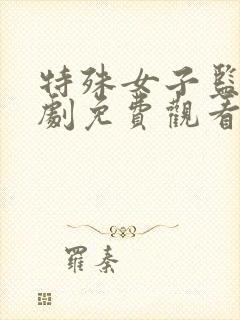 特殊女子監
劇免費觀看
羅秦